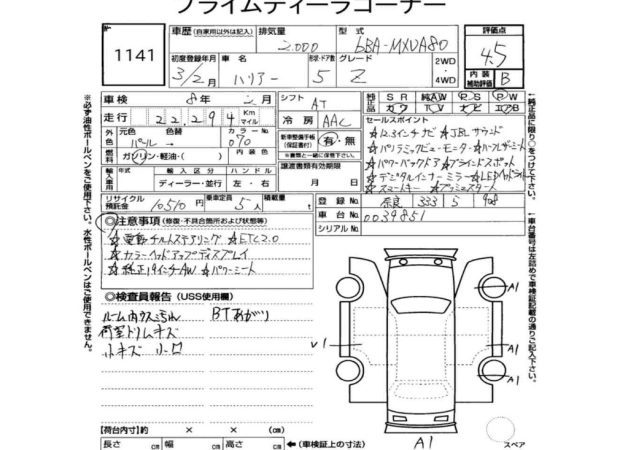 プライムディーラーコーナー
1141
車歴 (自家用以外は記入) 排気量 型式 評価点
2.000 6BA-MXUA80 4.5
初度登録年月 車名 形状・ドア数 グレード 2WD ・ 4WD
3/2月 ハリアー 5 Z
内装補助評価 B
車検 8年 2月 シフト AT
走行 22294 Km マイル 冷房 AAC
純正品 SR 純AW PS PW
カワ TV ナビ エアB
外色 元色 色替 カラーNo
パール→ 070
新車整備手帳(保証書付) 有・無
※書類と一緒に保管して下さい。
燃料 ガソリン・軽油・( )
譲渡書類有効期限
月 日
輸入車用 年式 輸入区分 ハンドル
ディーラー・並行 左・右
リサイクル預託金 10510円 乗車定員 5人 積載量 t
セールスポイント
☆12.3インチナビ ☆JBLサウンド
☆パノラミックビューモニター ☆ハーフレザーシート
☆パワーバックドア ☆ブラインドスポット
☆デジタルインナーミラー ☆LEDヘッドライト
☆スマートキー ☆プッシュスタート
登録No 奈良 333
車台No 0039851
シリアルNo
◎注意事項 (修復・不具合箇所および状態等)
☆電動チルトステアリング ☆ETC2.0
☆カラーヘッドアップディスプレイ
☆純正19インチAW ☆パワーシート
◎検査員報告 (USS使用欄)
ルーム内ウス汚れ BTあがり
荷室トリムキズ
小キズ 小凹
A1
V1
A1
A1
A1
スペア
【荷台内寸】約 × × (cm)
長さ cm 幅 cm 高さ cm ←(車検証上の寸法)
※必ず油性ボールペンをご使用下さい。水性ボールペンはご使用できません。
↑純正品に限り○をつけて下さい。
↑車台番号は左詰めで車検証記載の通りご記入下さい。